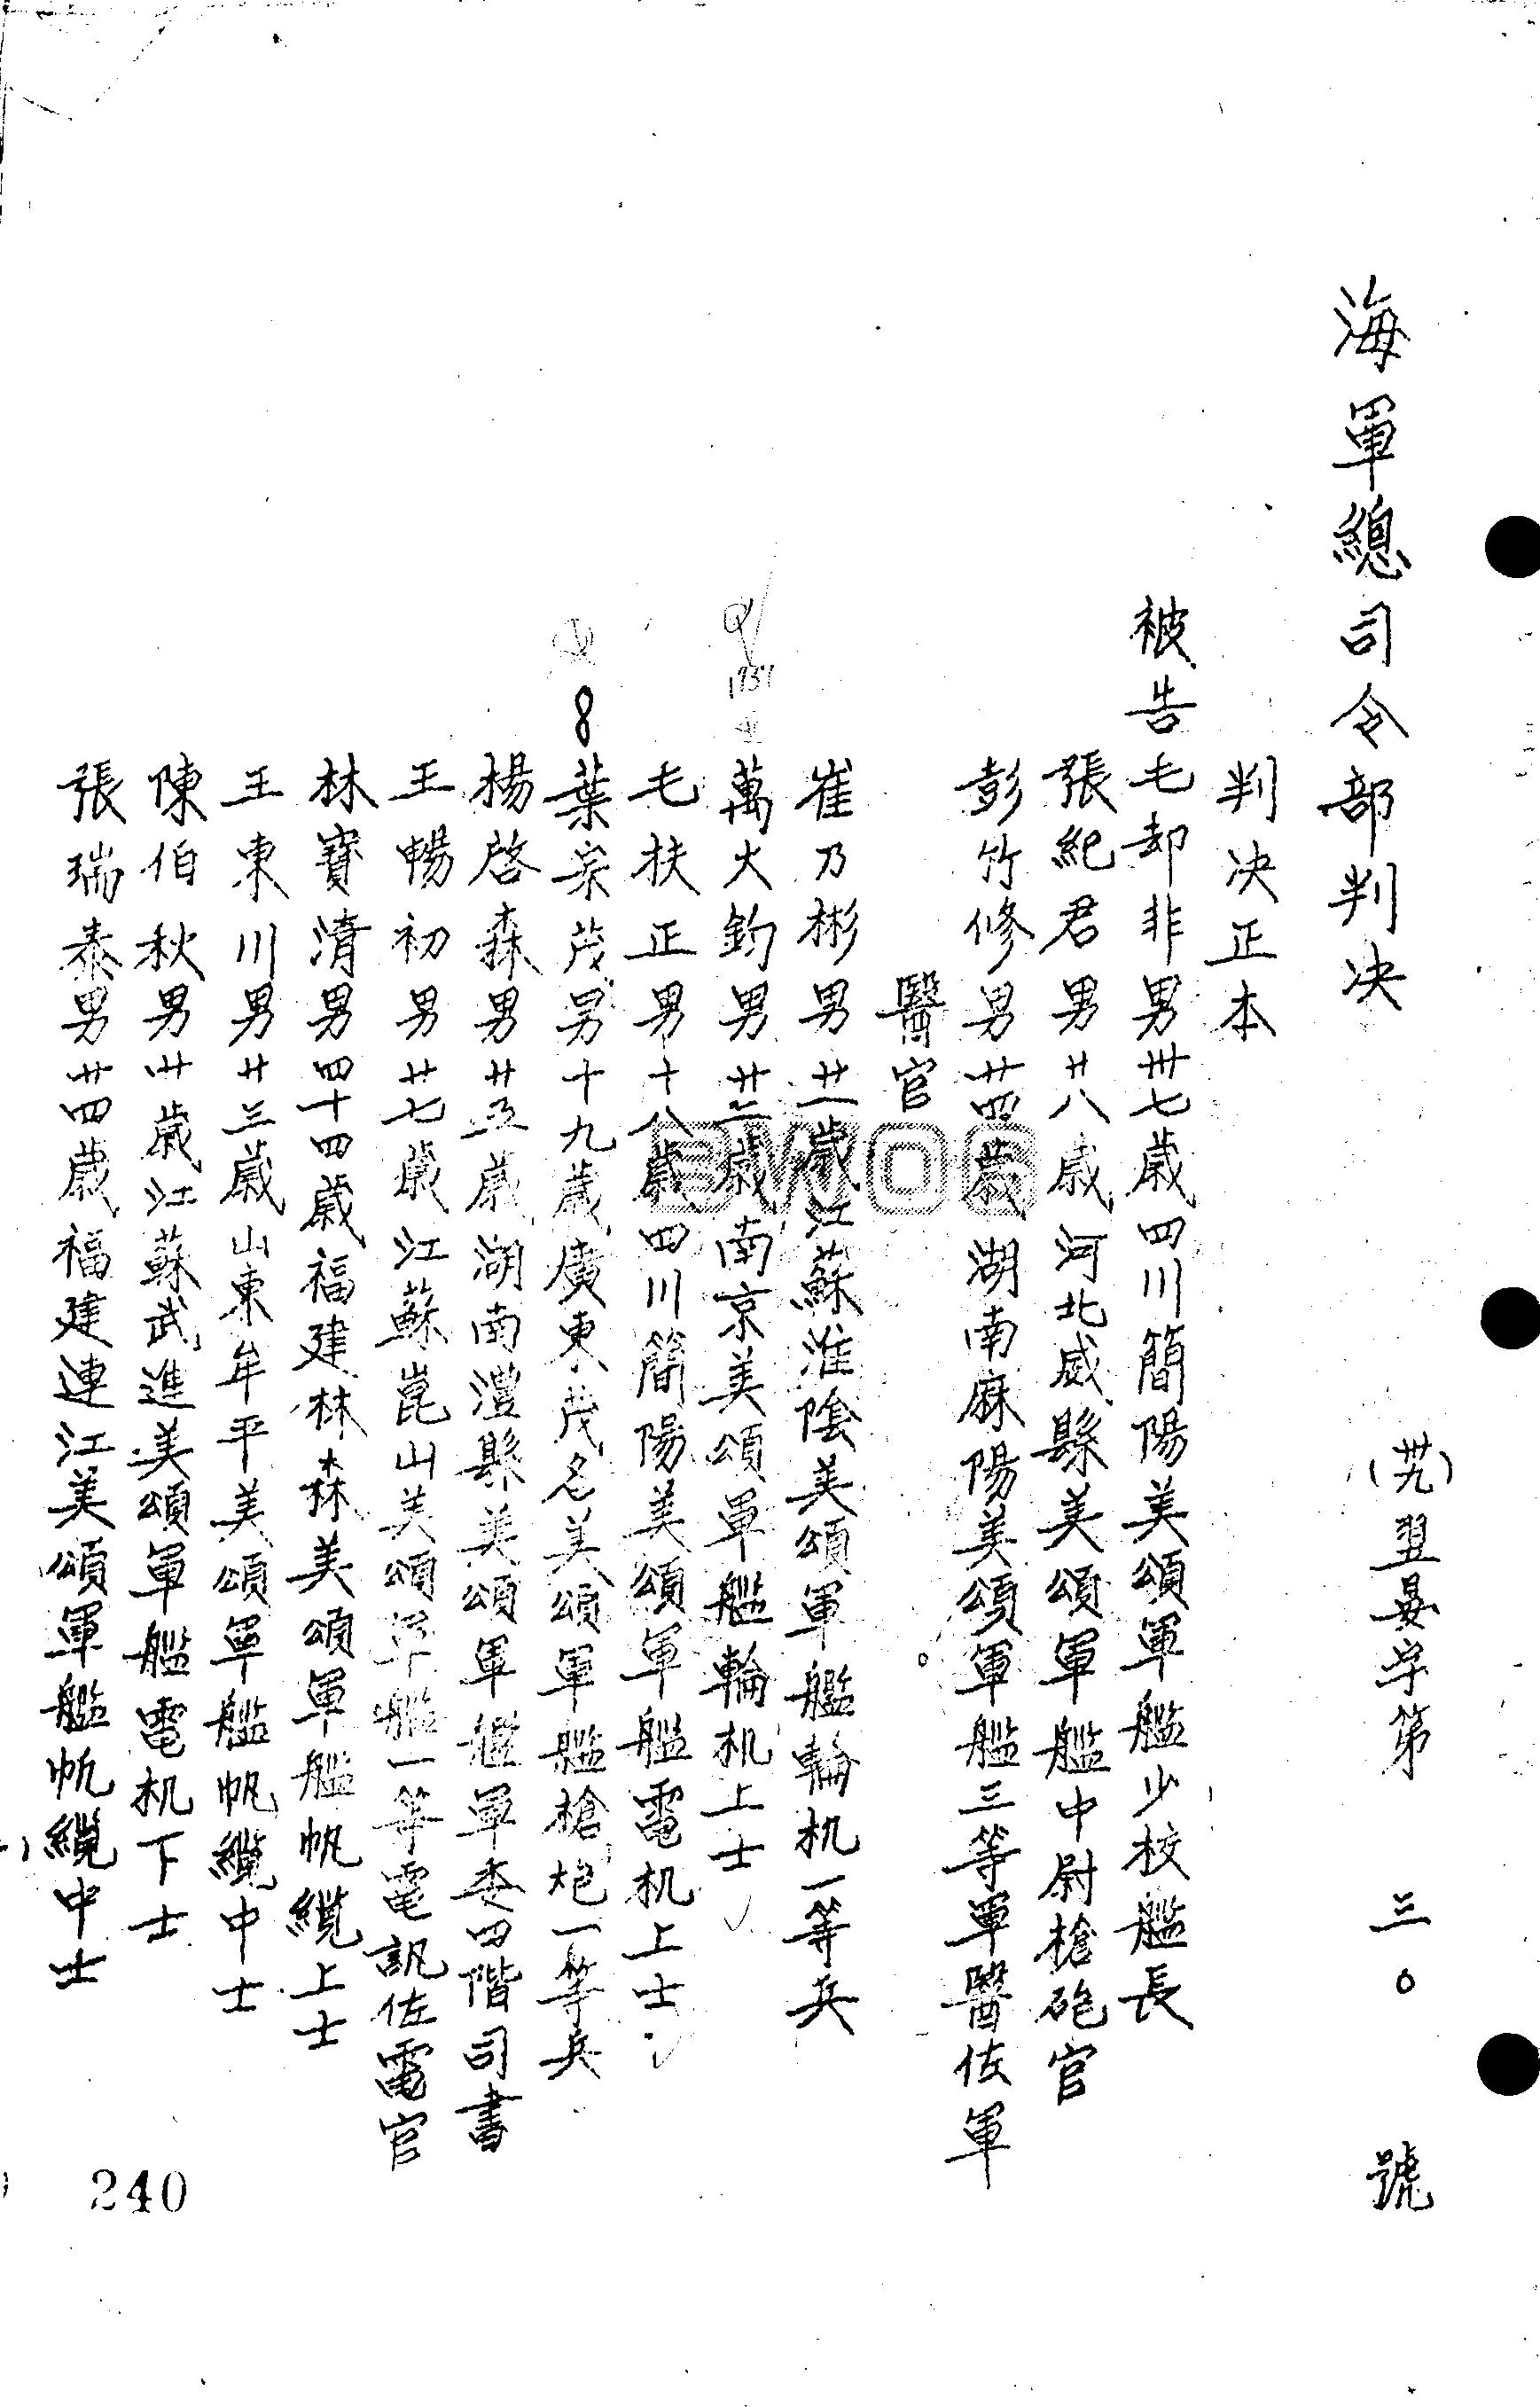 海軍總司令部判决 (卅九)翌晏字第 三〇 號
判决正本
被告毛却非男卅七歲四川簡陽美頌軍艦少校艦長
張紀君男廿八歲河北威縣美頌軍艦中尉槍砲官
彭竹修男廿四歲湖南麻陽美頌軍艦三等軍醫佐軍
醫官
崔乃彬男廿一歲江蘇淮陰美頌軍艦輪机一等兵
萬大鈞男廿二歲南京美頌軍艦輪机上士
毛扶正男十八歲四川簡陽美頌軍艦電机上士
葉宗茂男十九歲廣東茂名美頌軍艦槍炮一等兵
楊啓森男廿五歲湖南澧縣美頌軍艦軍委四階司書
王暢初男廿七歲江蘇崑山美頌軍艦一等電訊佐電官
林寶清男四十四歲福建林森美頌軍艦帆纜上士
王東川男廿三歲山東牟平美頌軍艦帆纜中士
陳伯秋男廿歲江蘇武進美頌軍艦電机下士
張瑞泰男廿四歲福建連江美頌軍艦帆纜中士
8
240